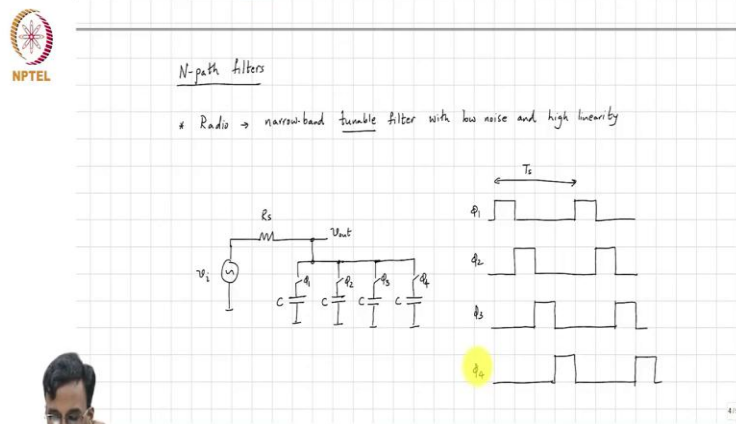 NPTEL
N-path filters
* Radio → narrow-band tunable filter with low noise and high linearity
Ts
Φ1
Rs
Vout
Φ2
Vi
Φ1 Φ2 Φ3 Φ4
C C C C
Φ3
Φ4